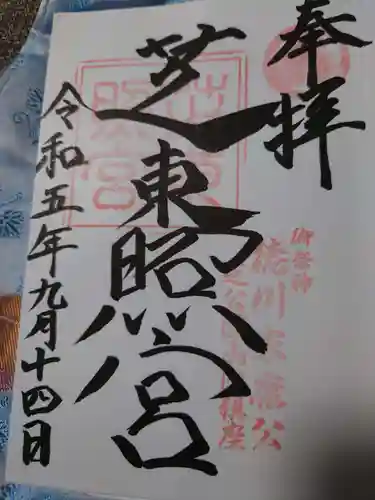 奉拝
御祭神
徳川家康公
芝東照宮
令和五年九月十四日